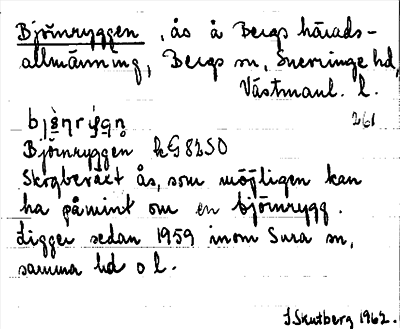 Björnryggen, ås å Bergs härads-
allmänning, Bergs sn, Snevringe hd,
Västmanl. l.
261
Björnryggen kG 8250
Skogbeväxt ås, som möjligen kan
ha påmint om en björnrygg.
Ligger sedan 1959 inom Sura sn,
samma hd o l.
J Skutberg 1962.